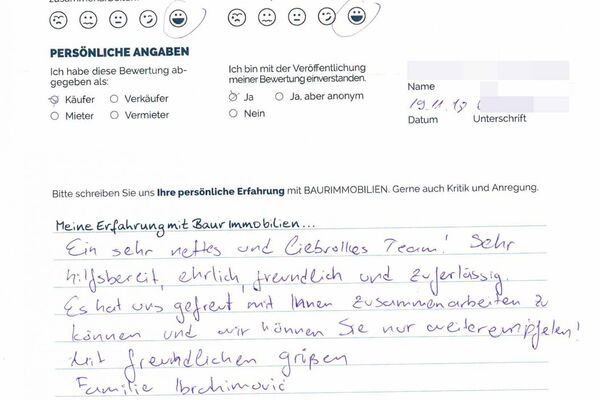 PERSÖNLICHE ANGABEN
Ich habe diese Bewertung ab-
gegeben als:
Käufer Verkäufer
Mieter Vermieter
Ich bin mit der Veröffentlichung
meiner Bewertung einverstanden.
Ja Ja, aber anonym
Nein
Name
19.11.19
Datum Unterschrift
Bitte schreiben Sie uns Ihre persönliche Erfahrung mit BAURIMMOBILIEN. Gerne auch Kritik und Anregung.
Meine Erfahrung mit Baur Immobilien...
Ein sehr nettes und Liebvolles Team! Sehr
hilfsbereit, ehrlich, freundlich und zuferlässig.
Es hat uns gefreut mit Ihnen zusammenarbeiten zu
können und wir können Sie nur weiterempfelen!
Mit freundlichen grüßen
Familie Ibrahimović